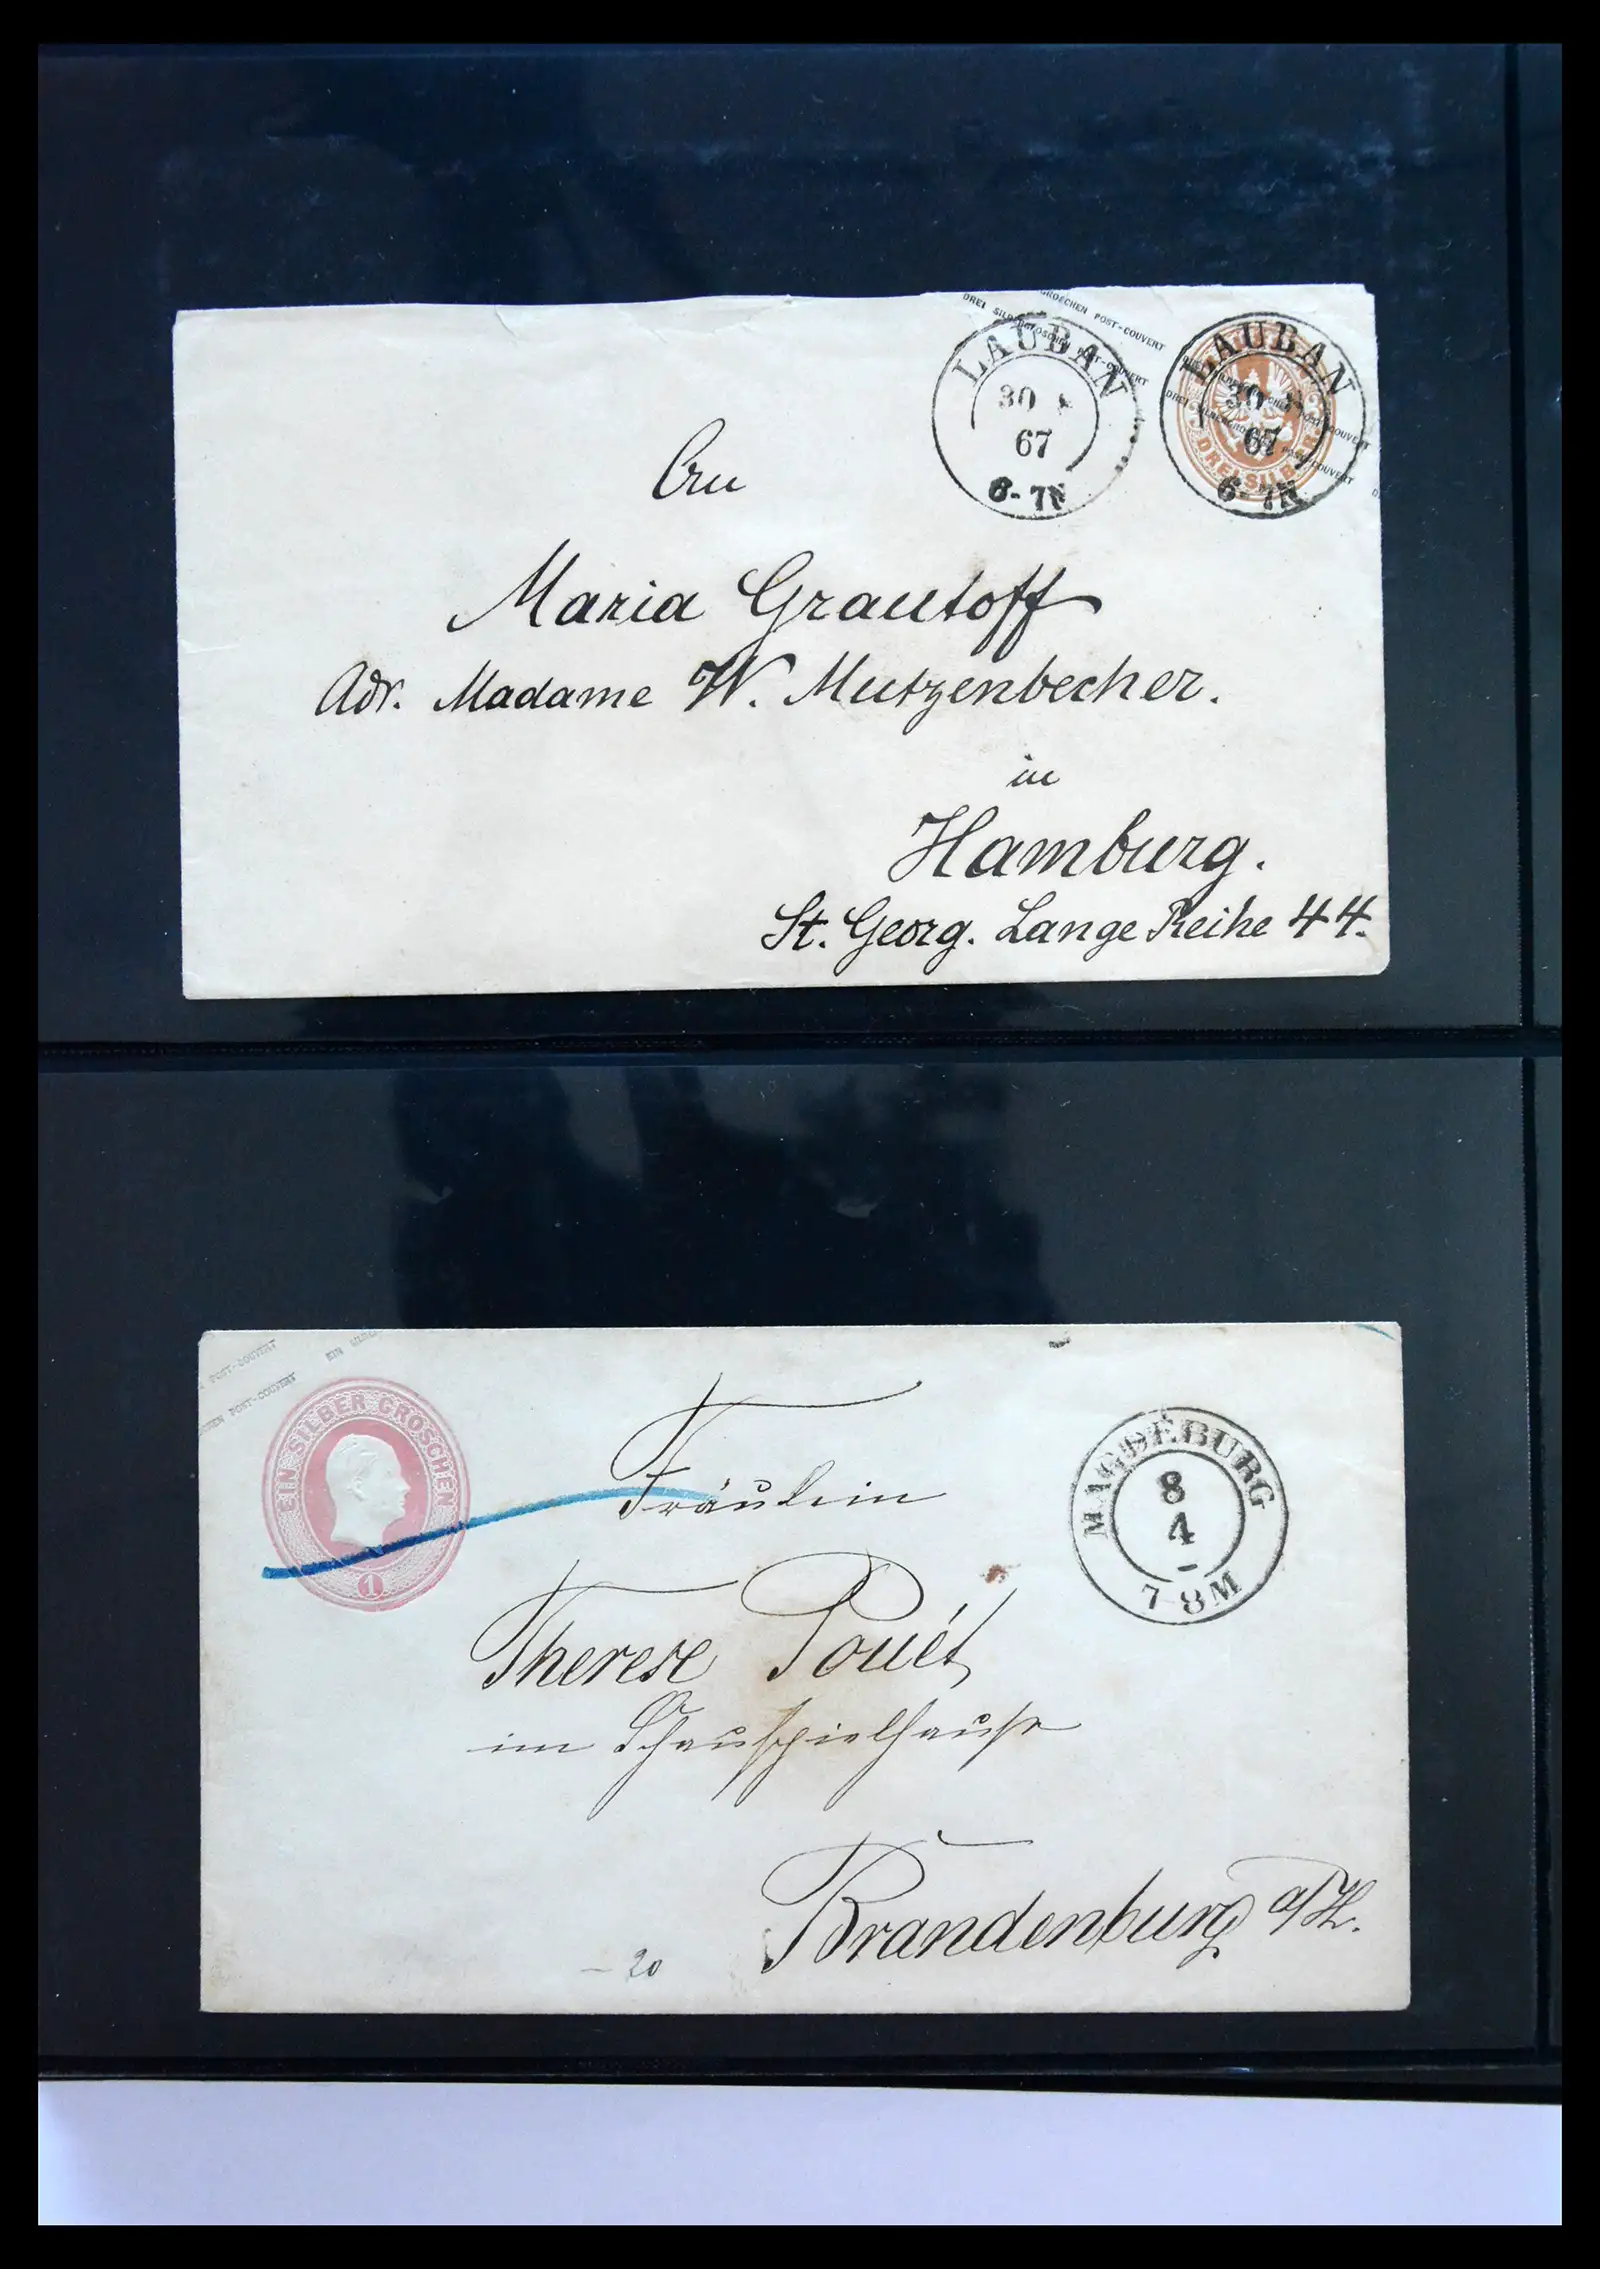 GROSCHEN POST-COUVERT
DREI SILBERGROSCHEN POST-COUVERT
DREI SILBERGROSCHEN POST-COUVERT
DREI SILBERGROSCHEN POST-COUVERT
LAUBAN
30
67
6-7N
LAUBAN
30
67
6-7N
DREI SILB
An
Maria Grautoff
Adr. Madame W. Mutzenbecher.
in
Hamburg.
St. Georg. Lange Reihe 44.
POST-COUVERT
EIN SILBER
CHEN POST-COUVERT
EIN SILBER GROSCHEN
1
MAGDEBURG
8
4
7-8M
Fräulein
Therese Pouét
im Schauspielhause
Brandenburg a/H.
- 20